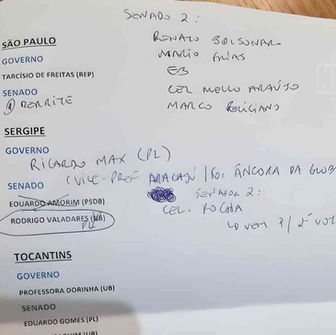 SENADO 2:
SÃO PAULO
RENATO BOLSONAR
GOVERNO
MARIO FRIAS
TARCÍSIO DE FREITAS (REP)
EB
SENADO
CEL MELLO ARAÚJO
① DERRITE
MARCO FELICIANO
SERGIPE
GOVERNO
RICARDO MAX (PL)
(VICE-PREF ARACAJÚ / FOI ÂNCORA DA GLOB
SENADO
EDUARDO AMORIM (PSDB)
SENADOR 2:
RODRIGO VALADARES (UB)
PL
CEL. ROCHA
VEM P/ 2º VOT
TOCANTINS
GOVERNO
PROFESSORA DORINHA (UB)
SENADO
EDUARDO GOMES (PL)
(UB)